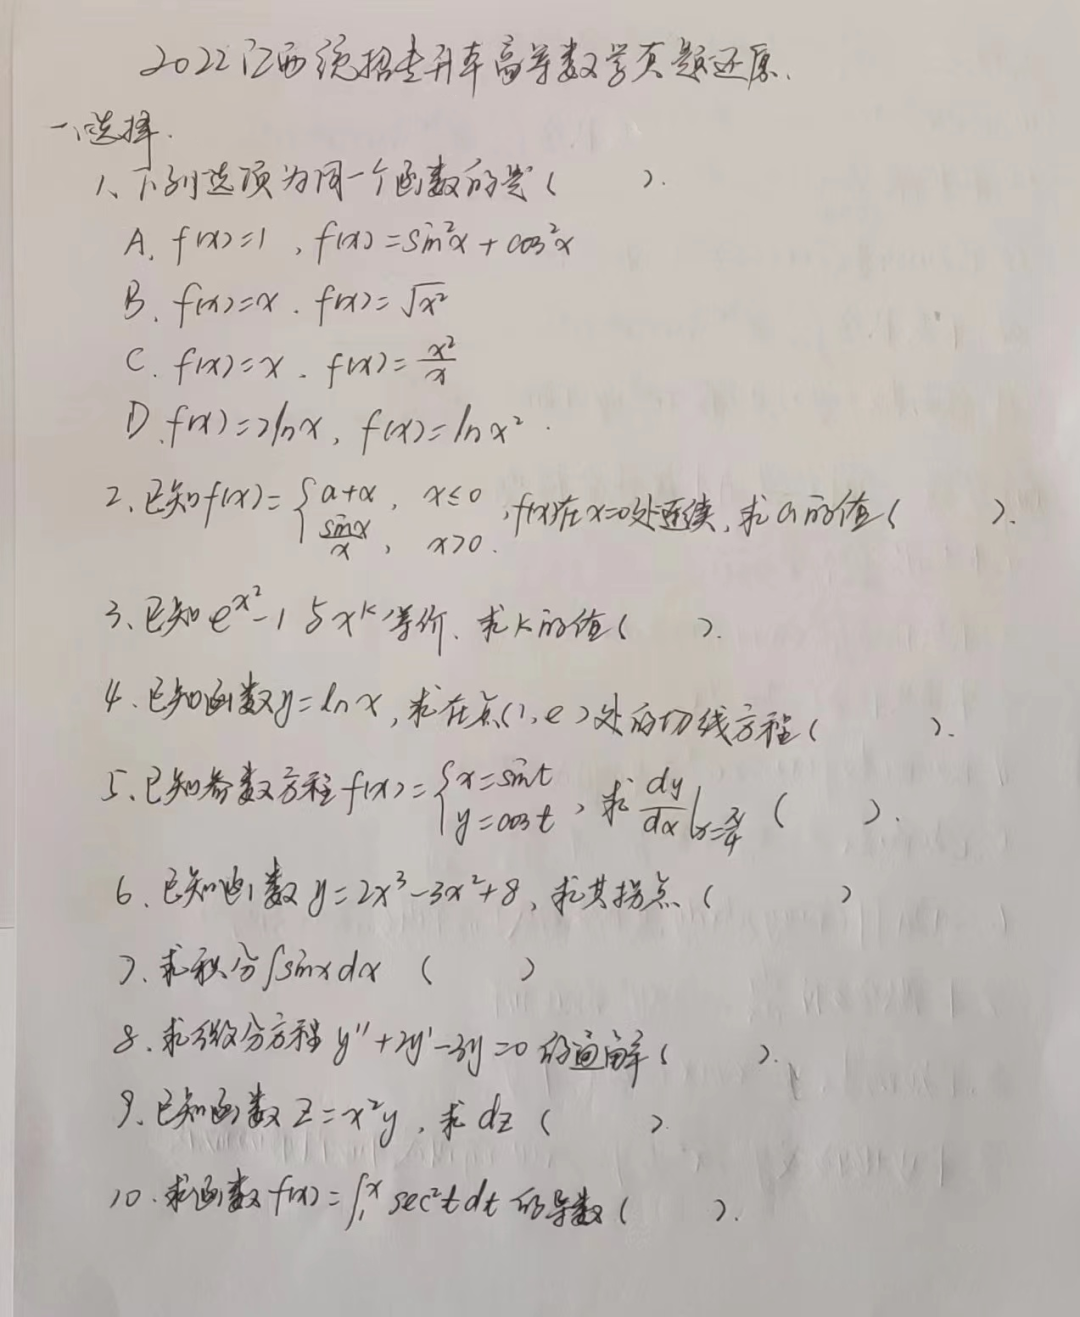 2022江西统招专升本高等数学真题还原.
一、选择.
1、下列选项为同一个函数的是( ).
A. f(x)=1 , f(x)=sin²x+cos²x
B. f(x)=x . f(x)=√x²
C. f(x)=x . f(x)=x²/x
D. f(x)=2lnx, f(x)=lnx² .
2、已知f(x)={a+x, x≤0; sinx/x, x>0. ,f(x)在x=0处连续,求a的值( ).
3、已知e^(x²)-1与x^k等价.求k的值( ).
4、已知函数y=lnx,求在点(1,e)处的切线方程( ).
5、已知参数方程f(x)={x=sint; y=cost, 求dy/dx|x=π/4 ( ).
6、已知函数y=2x³-3x²+8,求其拐点( )
7、求积分∫sinxdx ( )
8、求微分方程y''+2y'-3y=0的通解( ).
9、已知函数z=x²y,求dz( ).
10、求函数f(x)=∫₁ˣsec²tdt的导数( ).